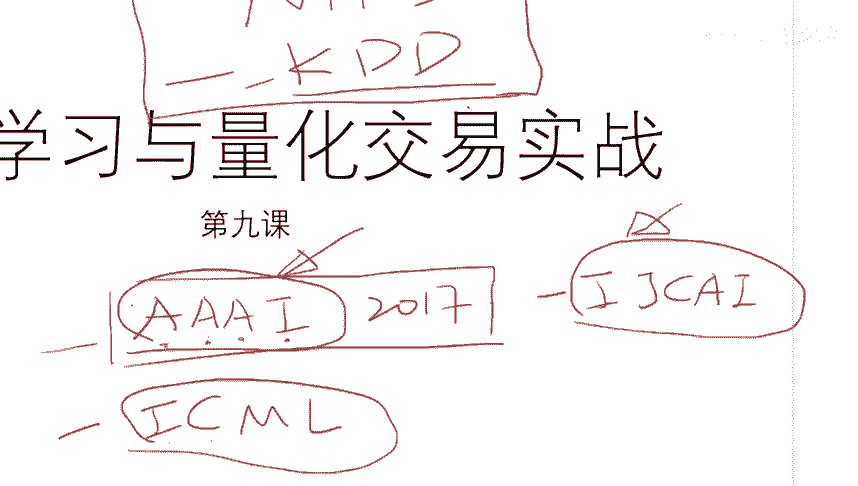 KDD
学习与量化交易实战
第九课
AAAI 2017
IJCAI
ICML